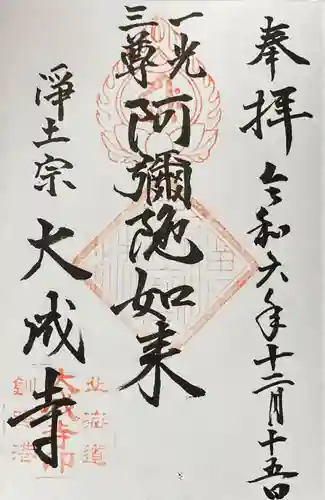 奉拝
令和六年十二月十五日
一光
三尊
阿彌陀如来
浄土宗
大成寺
北海道
大成寺印
釧路港